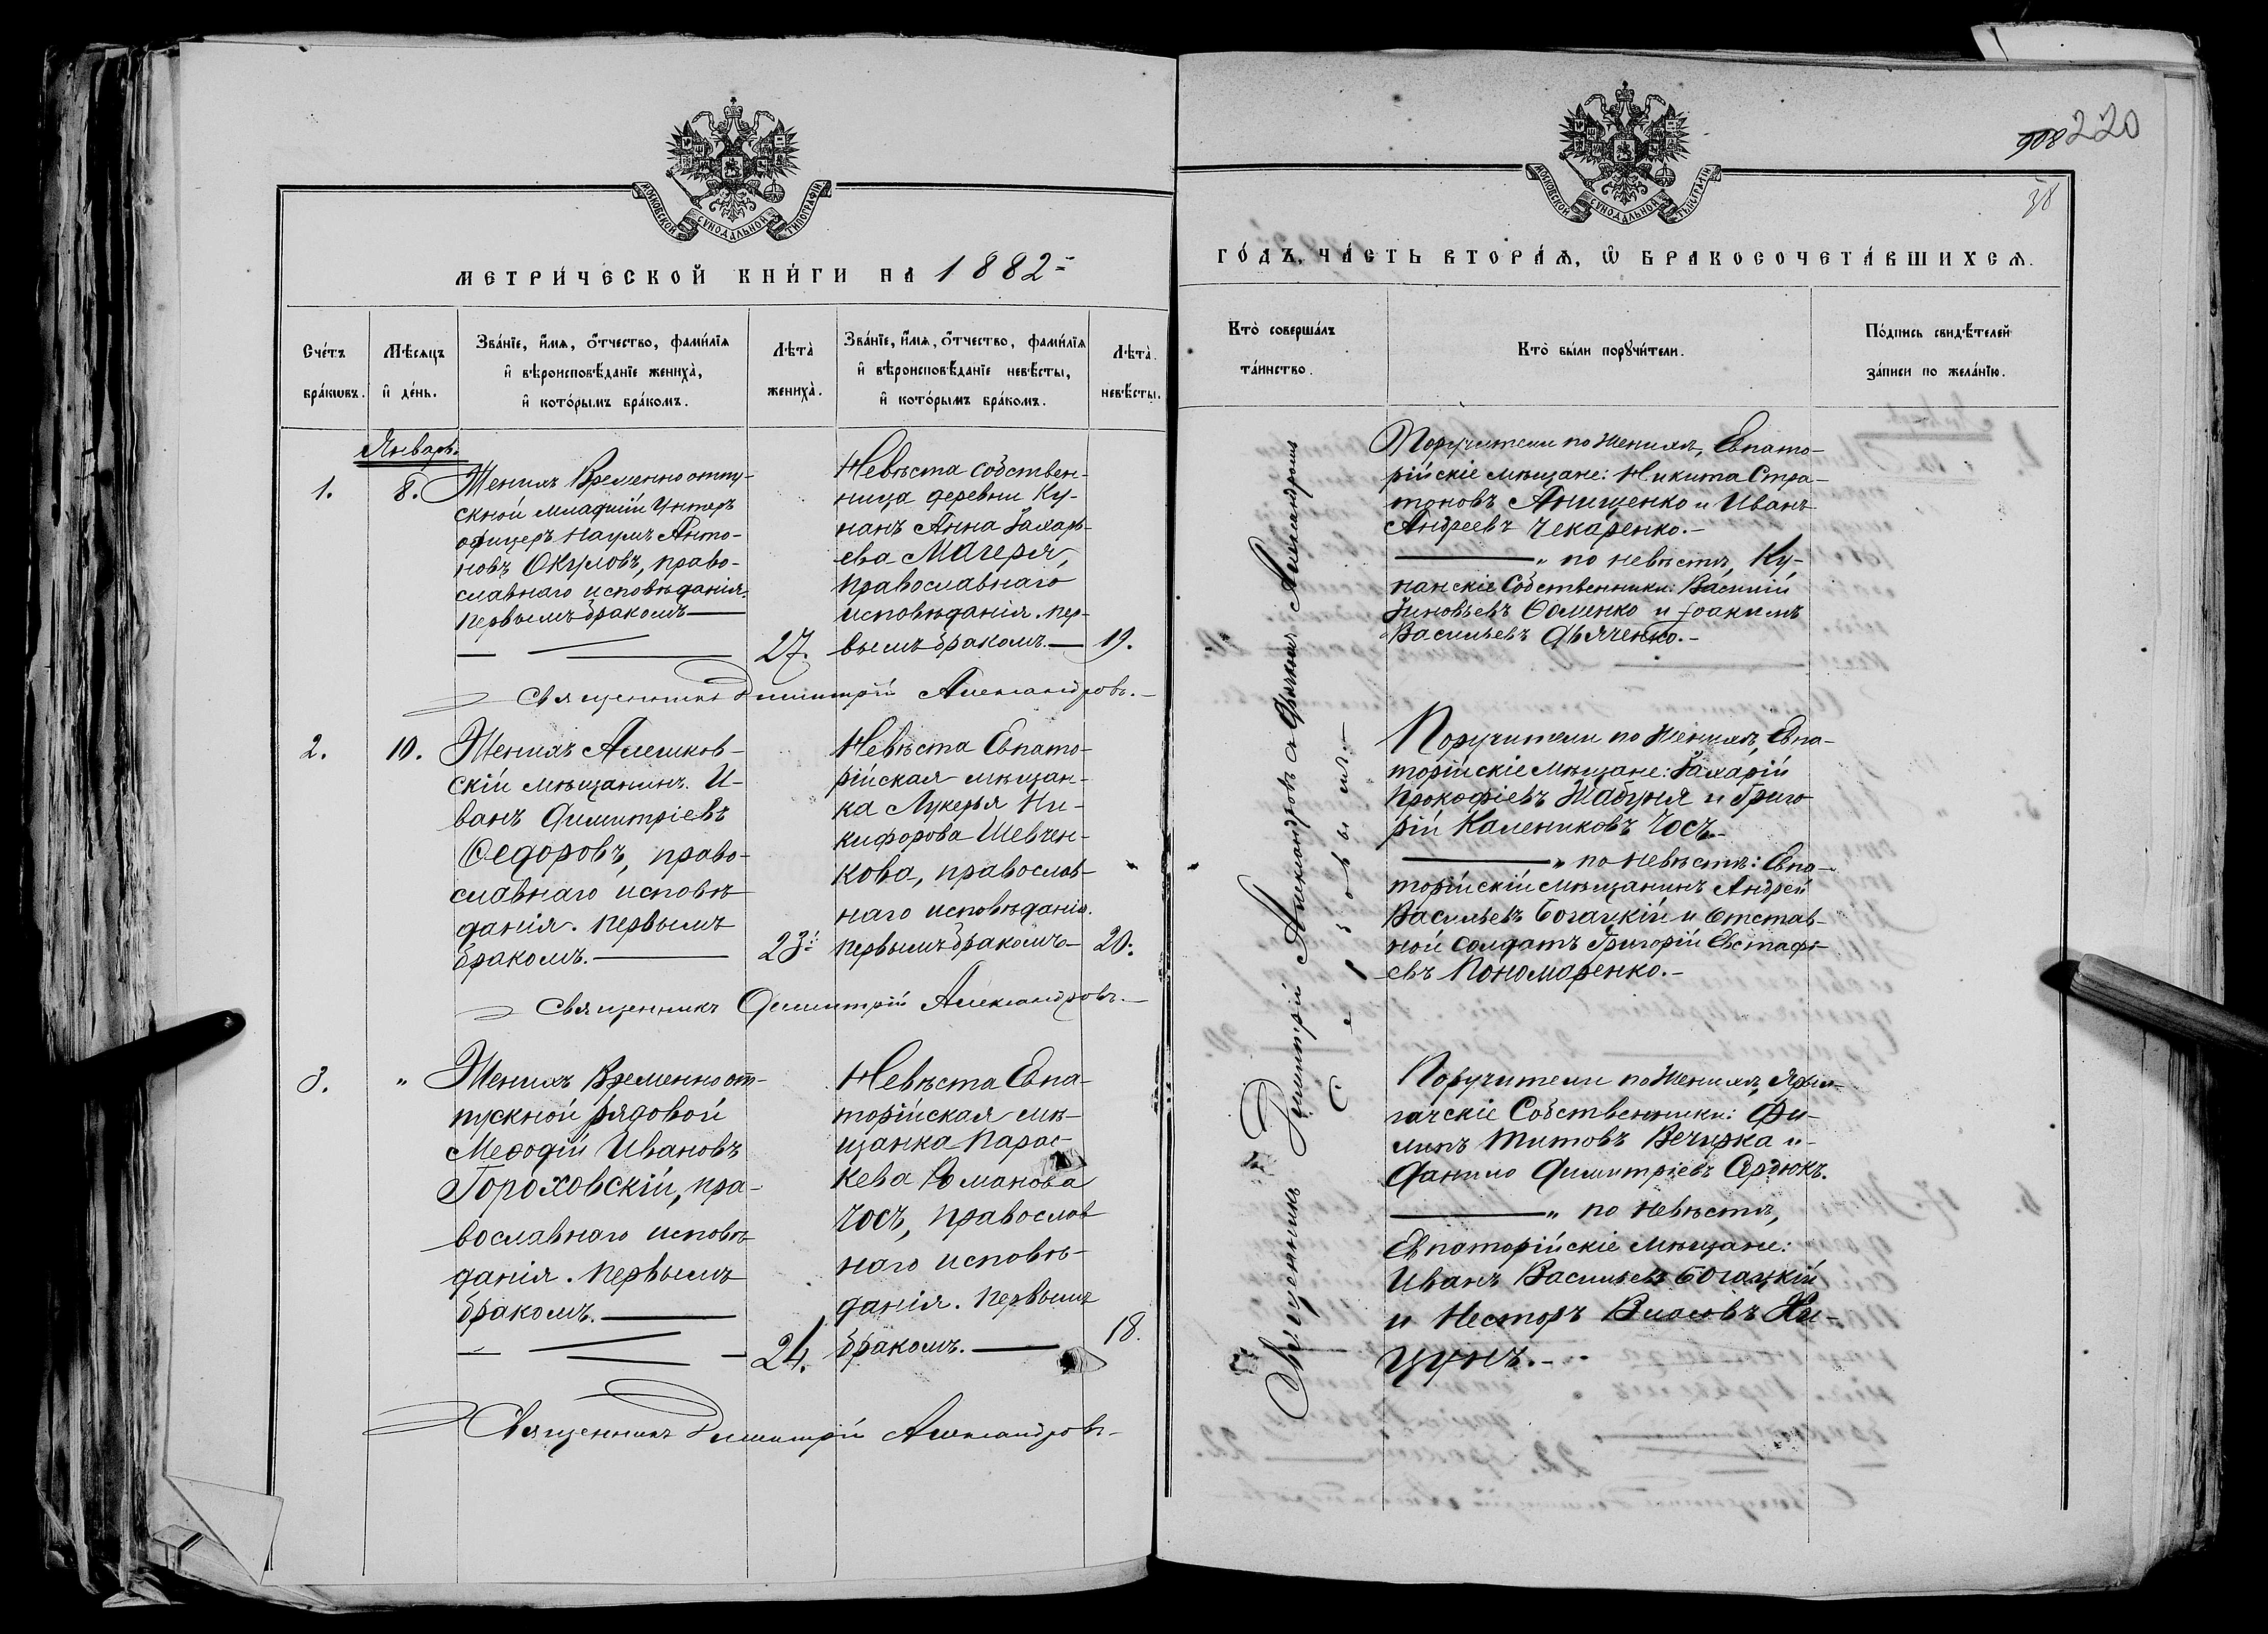 МОСКОВСКОЙ СѴНОДАЛЬНОЙ ТИПОГРАФІИ
МЕТРИ́ЧЕСКОЙ КНИ́ГИ НА 1882
Сче́тъ бра́кѡвъ.
Мѣ́сяцъ и҆ де́нь.
Зва́нїе, и҆́мѧ, ѻ҆́тчество, фами́лїѧ
и҆ вѣроисповѣ́данїе женихà,
и҆ кото́рымъ бра́комъ.
Лѣ́та̀ женихà.
Зва́нїе, и҆́мѧ, ѻ҆́тчество, фами́лїѧ
и҆ вѣроисповѣ́данїе невѣ́сты,
и҆ кото́рымъ бра́комъ.
Лѣ́та̀ невѣ́сты.
Январь.
1.
8.
Женихъ Временно отпу-
скной младшій Унтеръ
офицеръ Наумъ Анто-
новъ Окуловъ, право-
славнаго исповѣданія.
первымъ бракомъ
27.
Невѣста собствен-
ница деревни Ку-
нанъ Анна Захарь-
ева Магеря,
православнаго
исповѣданія. пер-
вымъ бракомъ.
19.
Священникъ Димитрій Александровъ.
2.
10.
Женихъ Алешков-
скій мѣщанинъ. И-
ванъ Димитріевъ
Ѳедоровъ, право-
славнаго исповѣ
данія. первымъ
бракомъ.
23.
Невѣста Евпато-
рійская мѣщан-
ка Лукерья Ни-
кифорова Шевчен-
кова, православ-
наго исповѣданія.
первымъ бракомъ
20.
Священникъ Димитрій Александровъ.
3.
"
Женихъ Временно от-
пускной рядовой
Меѳодій Ивановъ
Гороховскій, пра-
вославнаго исповѣ-
данія. первымъ
бракомъ.
24.
Невѣста Евпа-
торійская мѣ-
щанка Парас-
кева Романова
Чосъ, православ
наго исповѣ-
данія. первымъ
бракомъ.
18.
Священникъ Димитрій Александровъ
908 220
38
МОСКОВСКОЙ СѴНОДАЛЬНОЙ ТИПОГРАФІИ
ГО́ДЪ, ЧА́СТЬ ВТОРА́Ѧ, Ѿ БРАКОСОЧЕТА́ВШИХСѦ.
Кто̀ соверша́лъ
та́инство.
Кто̀ бы́ли порꙋчи́тели.
По́дпись свидѣ́телей
за́писи по жела́нїю.
Священникъ Димитрій Александровъ съ Дьячкомъ Александромъ
Поручители по Женихѣ, Евпато-
рійскіе мѣщане: Никита Стра-
тоновъ Анищенко и Иванъ
Андреевъ Чекаренко.-
" по невѣстѣ, Ку-
нанскіе Собственники: Василій
Зиновьевъ Ѳоменко и Іоакимъ
Васильевъ Дьяченко.-
Поручители по Женихѣ, Евпа-
торійскіе мѣщане: Захарій
Прокофіевъ Шабуня и Григо
рій Калениковъ Чосъ.
" по невѣстѣ: Евпа-
торійскій мѣщанинъ Андрей
Васильевъ Богацкій и Отстав-
ной солдатъ Григорій Евстафі-
евъ Пономаренко.-
Поручители по Женихѣ, Ярыл-
гачскіе Собственники: Фи-
липъ Титовъ Вечирка и
Данило Димитріевъ Сердюкъ.
" по невѣстѣ,
Евпаторійскіе мѣщане:
Иванъ Васильевъ Богацкій
и Несторъ Власовъ Ки-
цунъ.-